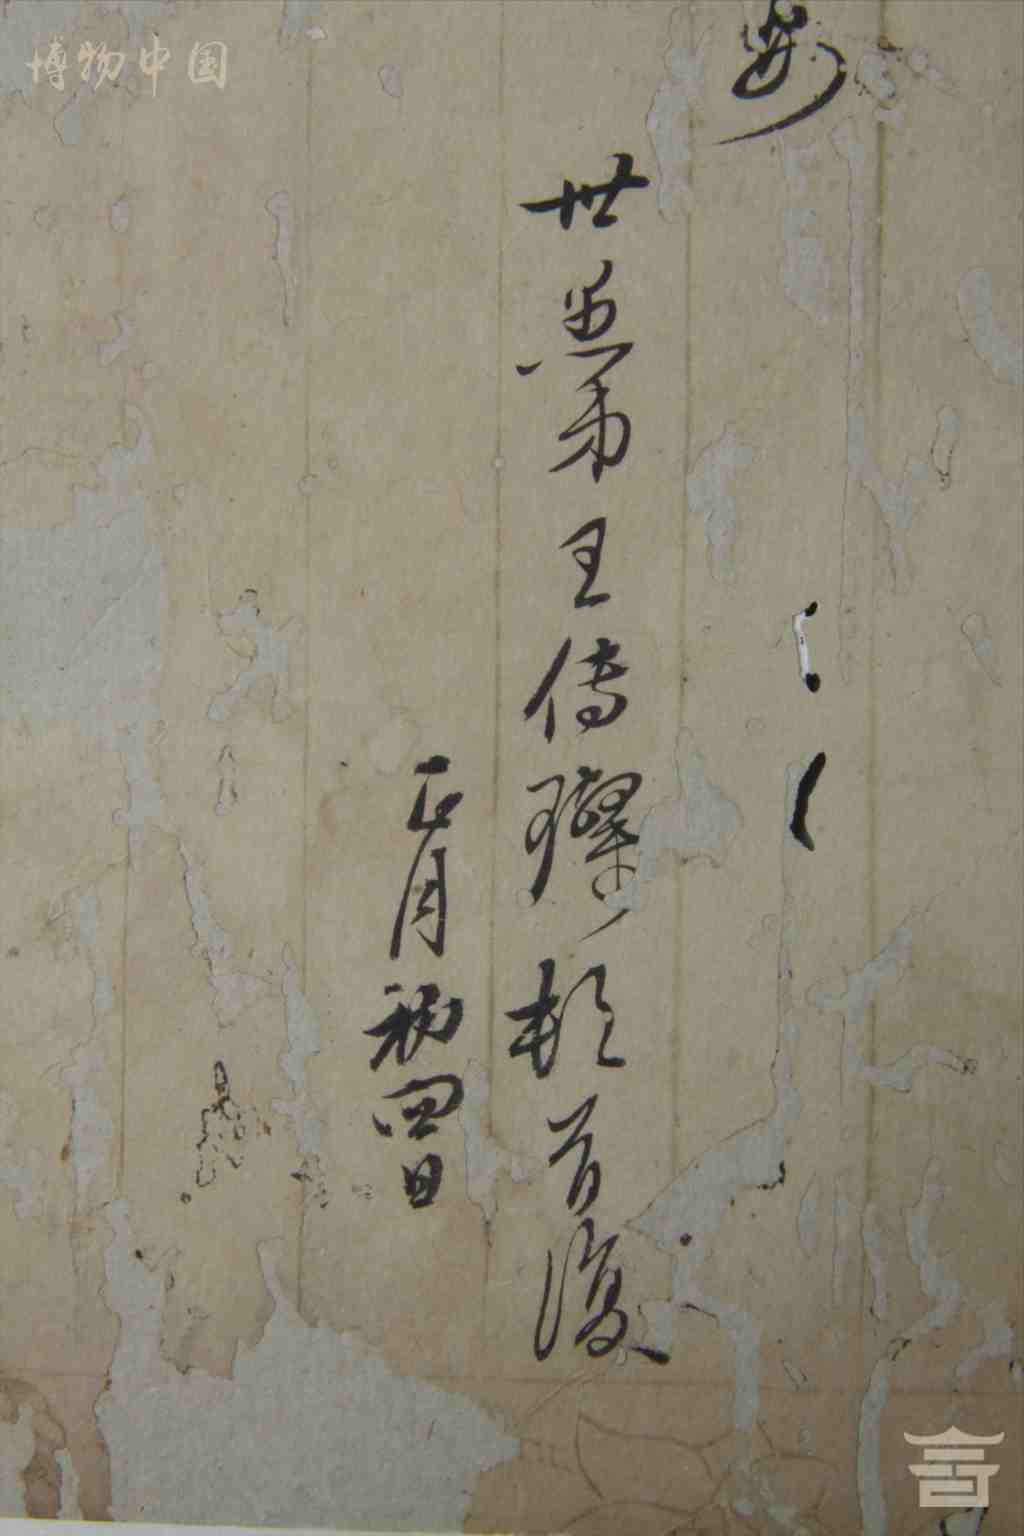 安
世愚弟王傳璨頓首復
正月初四日
博物中国